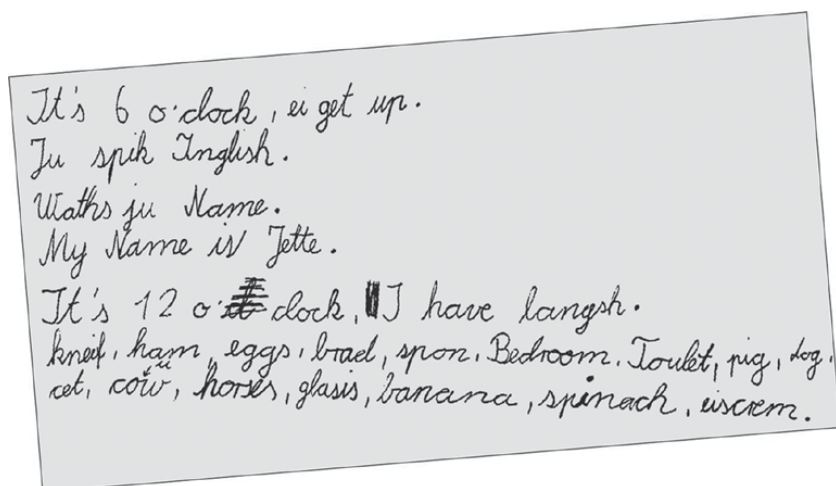 It's 6 o'clock, ei get up.
Ju spik Inglish.
Waths ju Name.
My Name is Jette.
It's 12 o'clock, I have langsh.
kneif, ham, eggs, brael, spon, Bedroom, Toulet, pig, dog,
cet, cow, horses, glasis, banana, spinach, eiscrem.